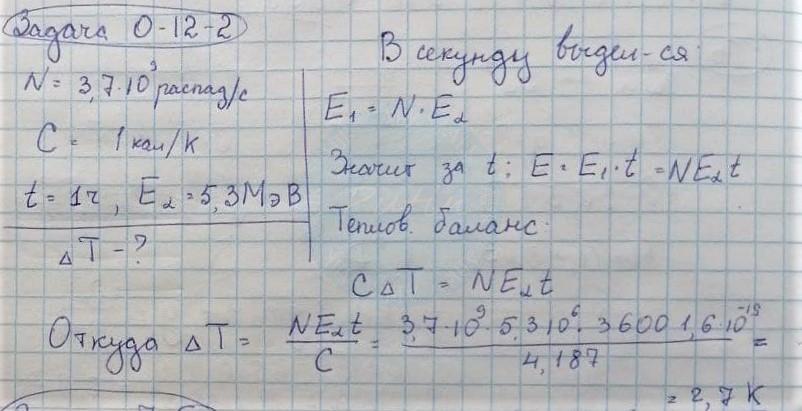 Задача 0-12-2
N = 3,7·10⁹ распад/с
C = 1 кал/К
t = 1ч, E₂ = 5,3МэВ
ΔT - ?
В секунду выдел-ся:
E₁ = N·E₂
Значит за t: E = E₁·t = NE₂t
Теплов. баланс:
CΔT = NE₂t
Откуда ΔT = NE₂t / C = 3,7·10⁹·5,3·10⁶·3600·1,6·10⁻¹⁹ / 4,187 =
= 2,7 К